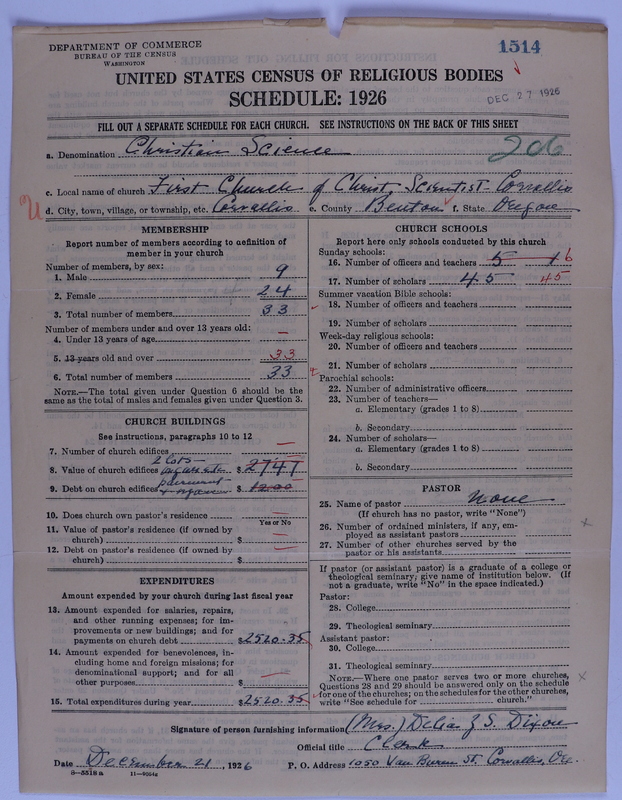 DEPARTMENT OF COMMERCE
BUREAU OF THE CENSUS
WASHINGTON
1514
UNITED STATES CENSUS OF RELIGIOUS BODIES
SCHEDULE: 1926
DEC 27 1926
FILL OUT A SEPARATE SCHEDULE FOR EACH CHURCH. SEE INSTRUCTIONS ON THE BACK OF THIS SHEET
a. Denomination Christian Science
206
c. Local name of church First Church of Christ, Scientist - Corvallis
d. City, town, village, or township, etc. Corvallis e. County Benton f. State Oregon
MEMBERSHIP
Report number of members according to definition of
member in your church
Number of members, by sex:
1. Male 9
2. Female 24
3. Total number of members 33
Number of members under and over 13 years old:
4. Under 13 years of age —
5. 13 years old and over 33
6. Total number of members 33
NOTE.—The total given under Question 6 should be the
same as the total of males and females given under Question 3.
CHURCH BUILDINGS
See instructions, paragraphs 10 to 12
7. Number of church edifices —
2 lots
8. Value of church edifices $ 2747
9. Debt on church edifices $ 1200
10. Does church own pastor's residence —
Yes or No
11. Value of pastor's residence (if owned by
church) $ —
12. Debt on pastor's residence (if owned by
church) $ —
EXPENDITURES
Amount expended by your church during last fiscal year
13. Amount expended for salaries, repairs,
and other running expenses; for im-
provements or new buildings; and for
payments on church debt $ 2520.35
14. Amount expended for benevolences, in-
cluding home and foreign missions; for
denominational support; and for all
other purposes $ —
15. Total expenditures during year $ 2520.35
CHURCH SCHOOLS
Report here only schools conducted by this church
Sunday schools:
16. Number of officers and teachers 5 6
17. Number of scholars 45 45
Summer vacation Bible schools:
18. Number of officers and teachers
19. Number of scholars
Week-day religious schools:
20. Number of officers and teachers
21. Number of scholars
Parochial schools:
22. Number of administrative officers
23. Number of teachers—
a. Elementary (grades 1 to 8)
b. Secondary
24. Number of scholars—
a. Elementary (grades 1 to 8)
b. Secondary
PASTOR
25. Name of pastor None
(If church has no pastor, write "None")
26. Number of ordained ministers, if any, em-
ployed as assistant pastors
27. Number of other churches served by the
pastor or his assistants
If pastor (or assistant pastor) is a graduate of a college or
theological seminary, give name of institution below. (If
not a graduate, write "No" in the space indicated.)
Pastor:
28. College
29. Theological seminary
Assistant pastor:
30. College
31. Theological seminary
NOTE.—Where one pastor serves two or more churches,
Questions 28 and 29 should be answered only on the schedule
for one of the churches; on the schedules for the other churches,
write "See schedule for church."
Signature of person furnishing information (Mrs.) Z. S. Dixon
Official title Clerk
Date December 21, 1926 P. O. Address 1050 Van Buren St. Corvallis, Ore.
8-5518a 11-9054